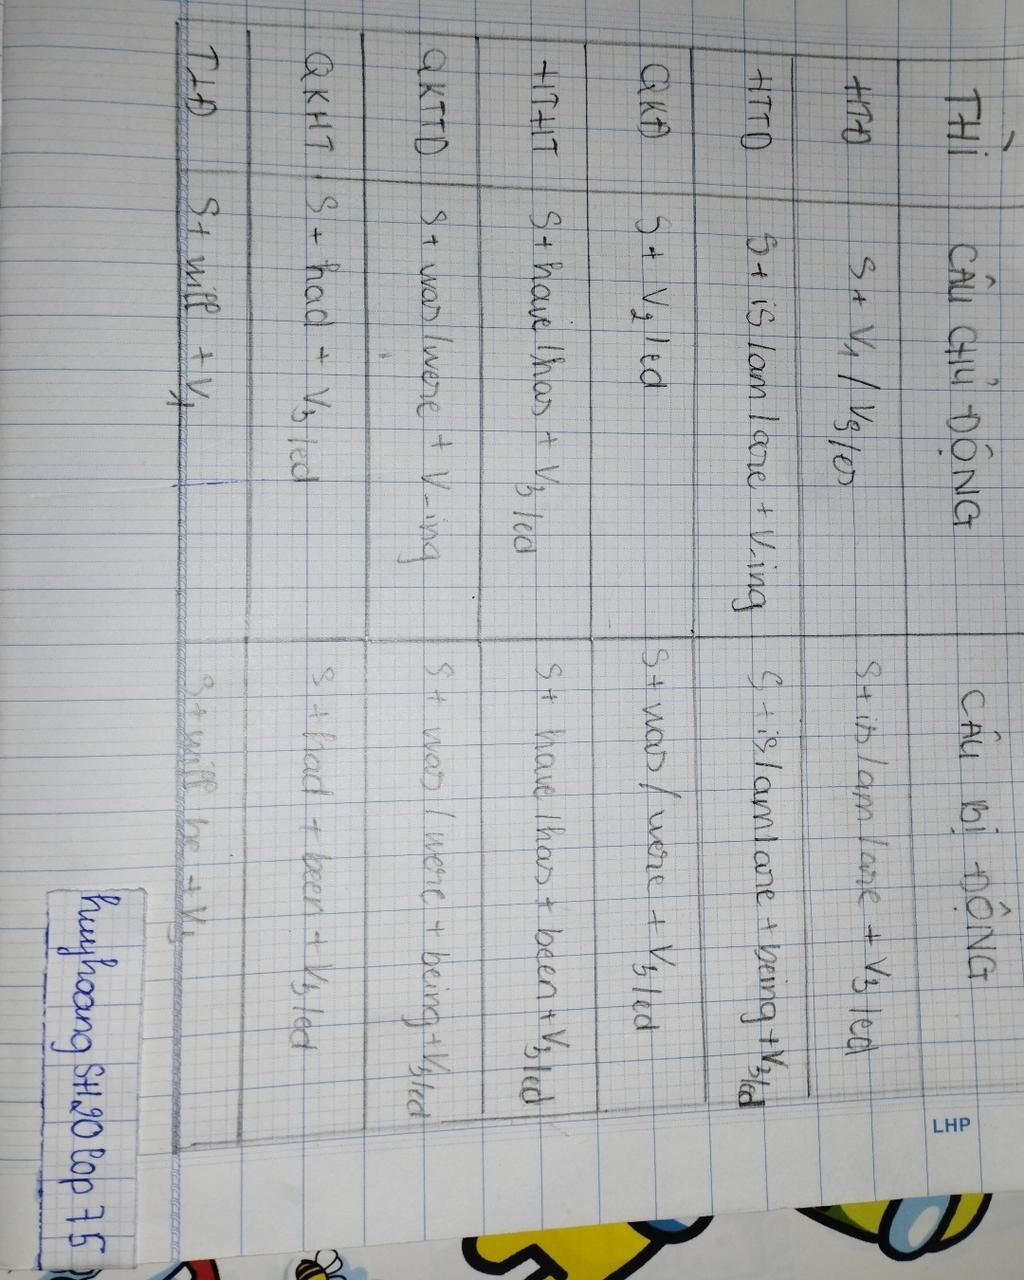 THÌ CÂU CHỦ ĐỘNG CÂU BỊ ĐỘNG
HTĐ S+ V1 / Vs/es S+ is/am/are + V3/ed
HTTD S+ is/am/are + V-ing S+is/am/are + being+V3/ed
QKĐ S+ V2/ed S+ was/were + V3/ed
HTHT S+ have/has + V3/ed S+ have/has + been + V3/ed
QKTTD S+ was/were + V-ing S+ was/were + being+V3/ed
QKHT S+ had + V3/ed S+had + been + V3/ed
TLĐ S+ will + V1 S+will be + V3
LHP
huyhoang SH20 lop 75